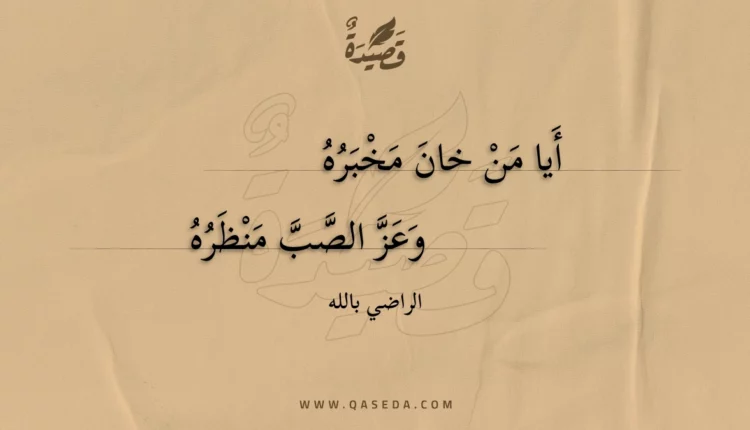 قَصِيدَةٌ
أَيا مَنْ خانَ مَخْبَرُهُ
وَعَزَّ الصَّبَّ مَنْظَرُهُ
الراضي بالله
WWW.QASEDA.COM